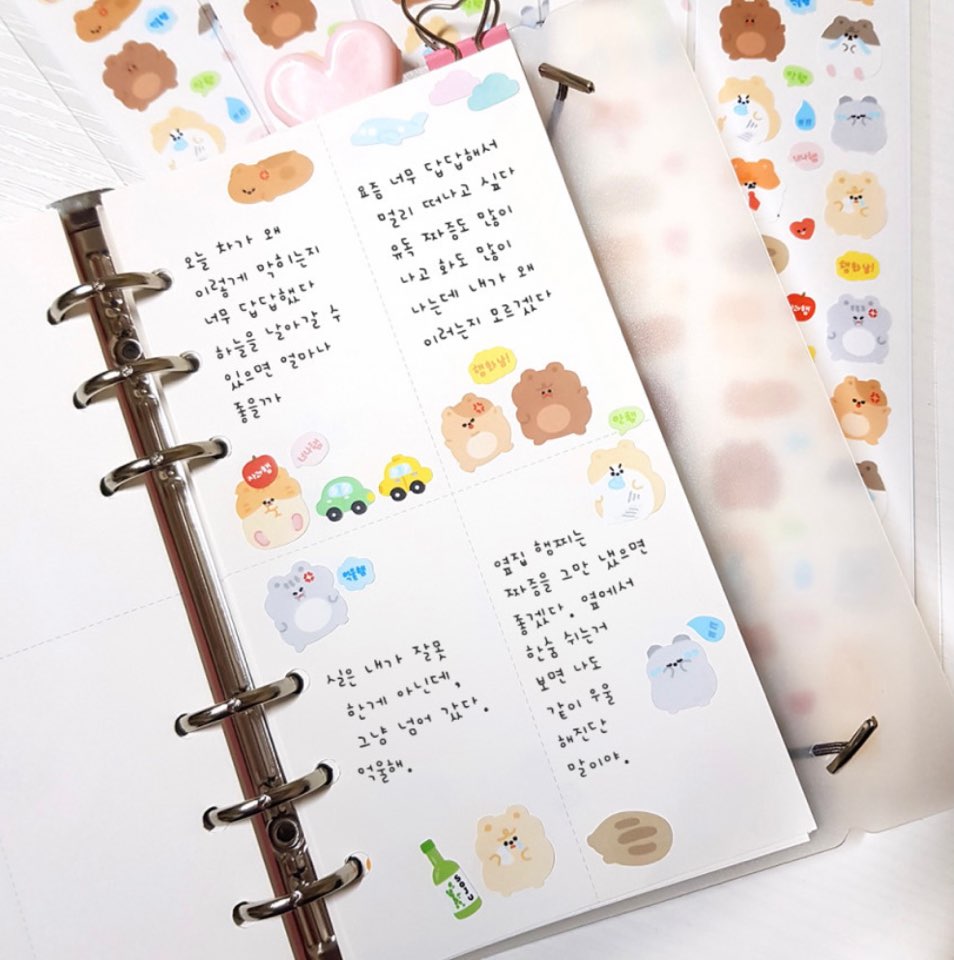 오늘 차가 왜
이렇게 막히는지
너무 답답했다
하늘을 날아갈 수
있으면 얼마나
좋을까
요즘 너무 답답해서
멀리 떠나고 싶다
유독 짜증도 많이
나고 화도 많이
나는데 내가 왜
이러는지 모르겠다
햄화남!
안햄
사과햄
너나햄
억울햄
실은 내가 잘못
한게 아닌데,
그냥 넘어 갔다.
억울해.
옆집 햄찌는
짜증을 그만 냈으면
좋겠다. 옆에서
한숨 쉬는거
보면 나도
같이 우울
해진단
말이야.
SOJU
안햄
안햄
너나햄
햄화남!